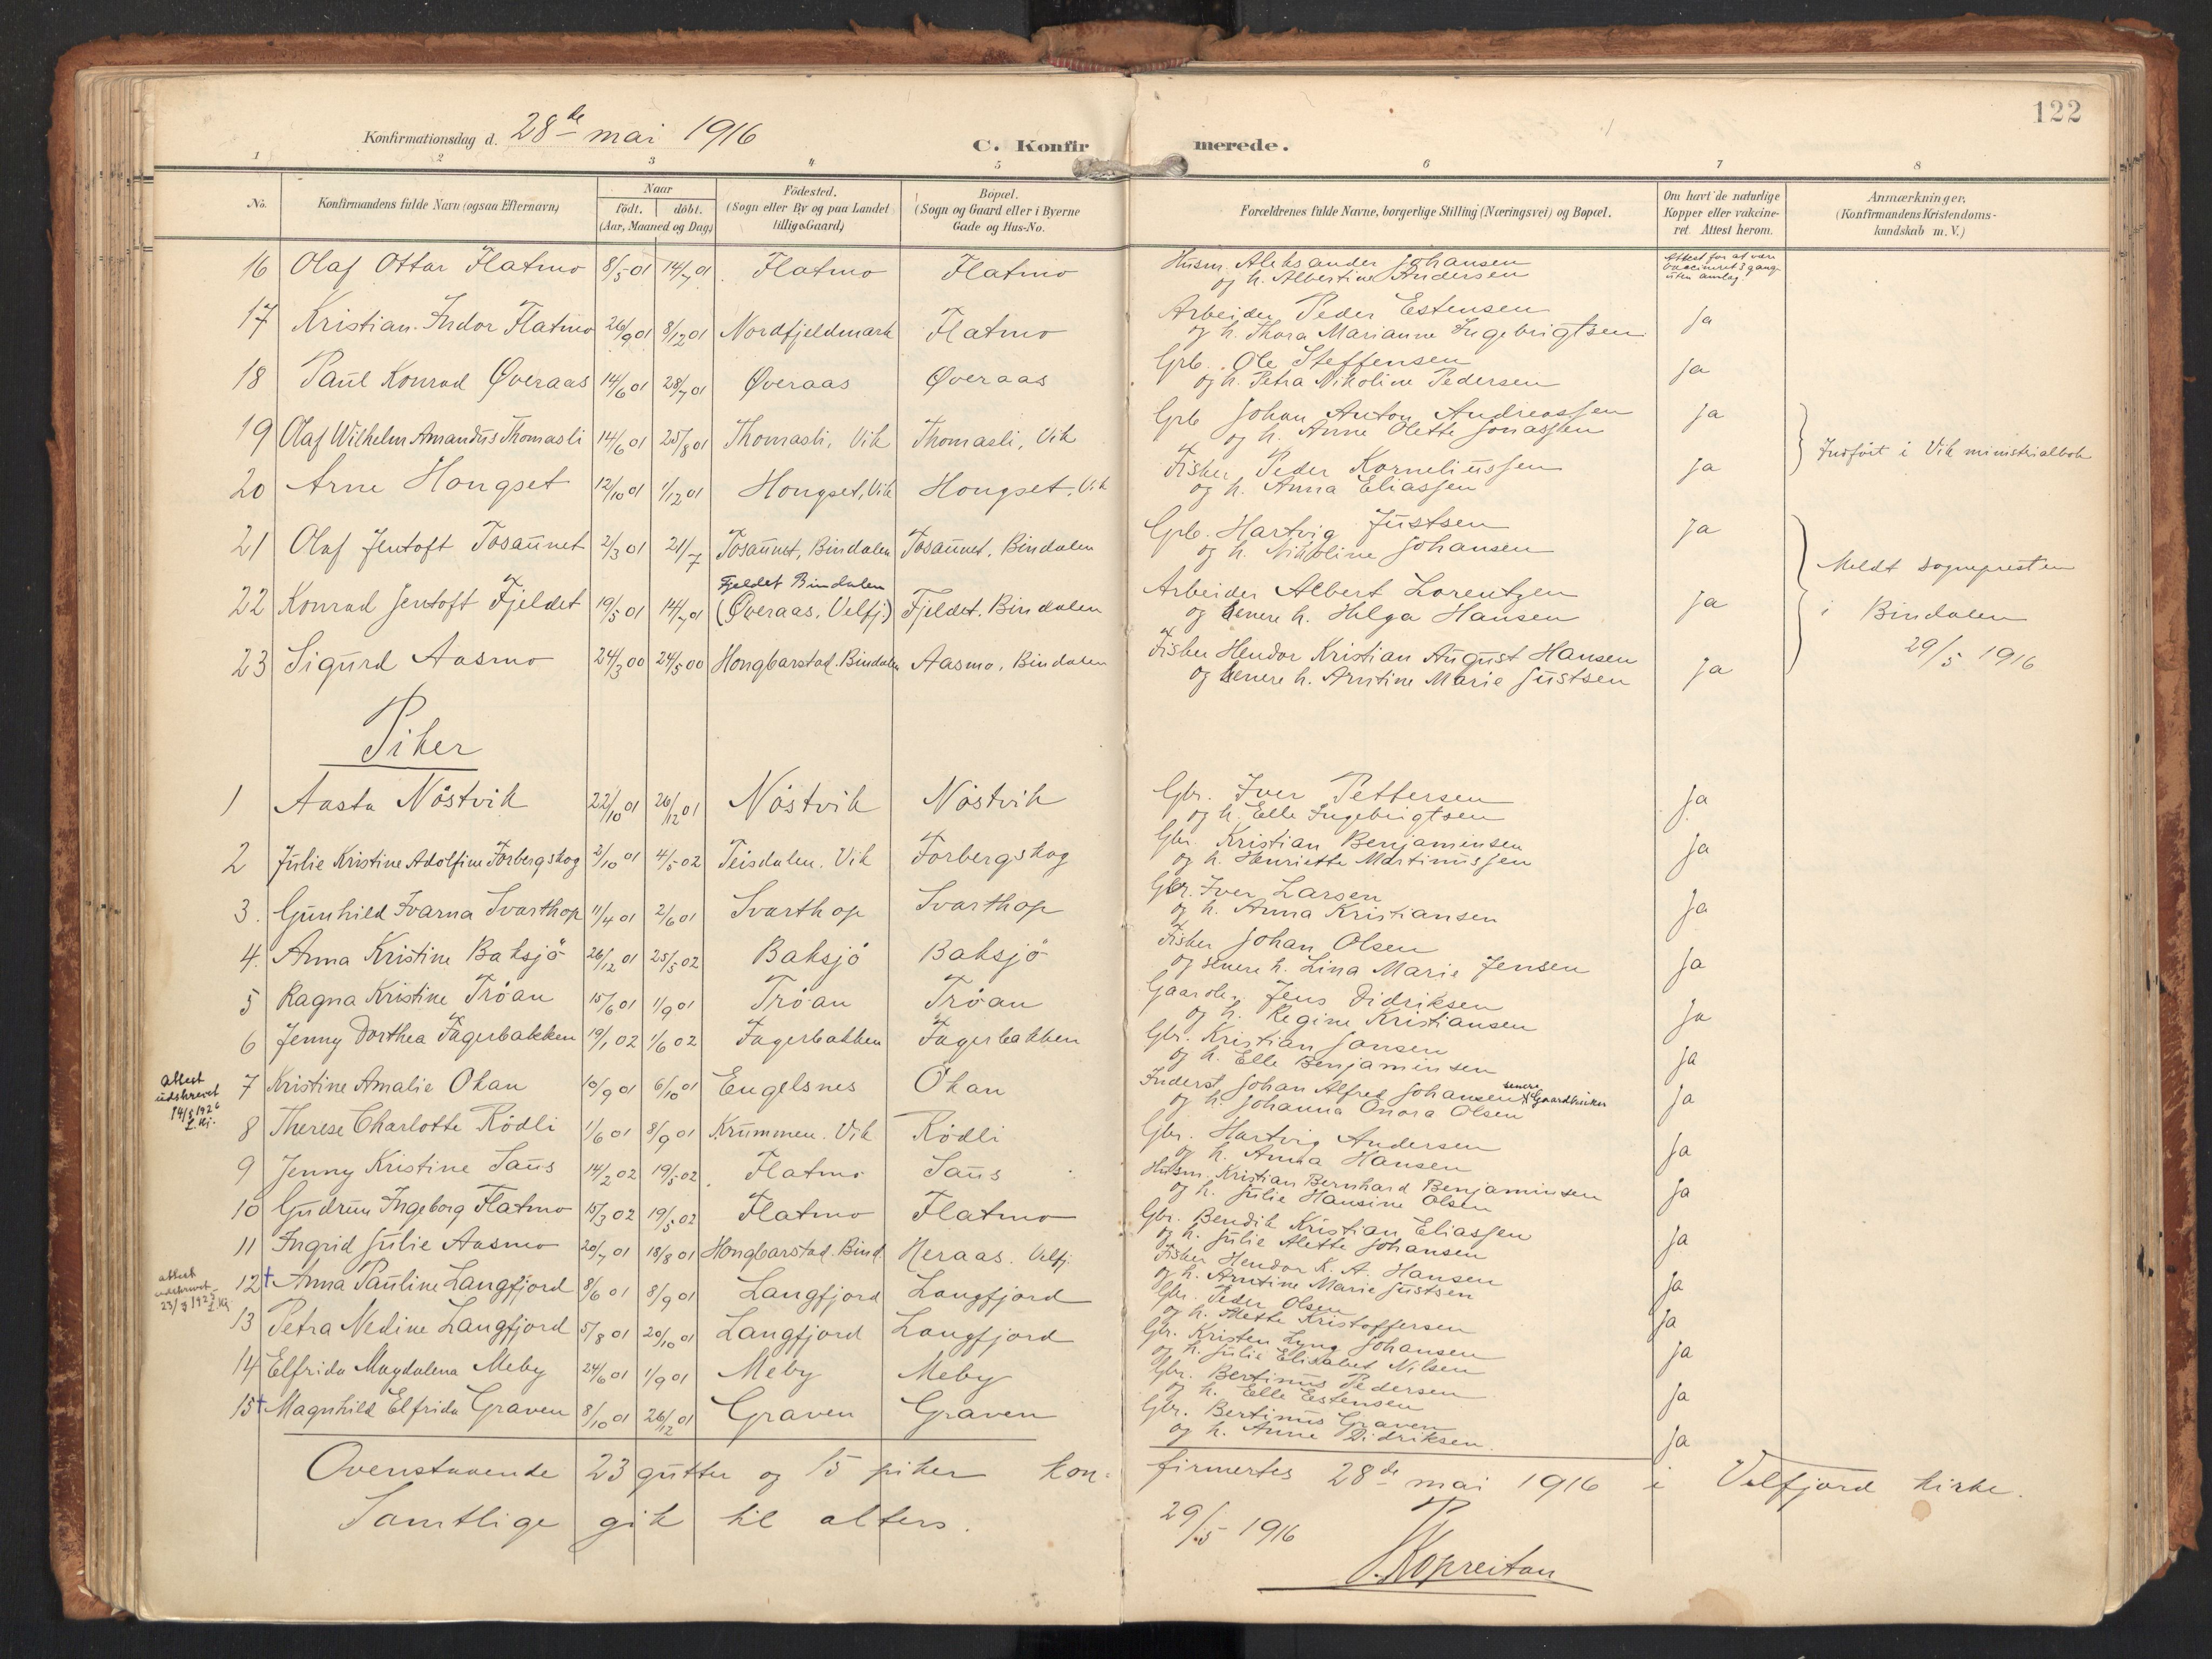 122
Konfirmationsdag d. 28de mai 1916
C. Konfirmerede.
1 2 3 4 5 6 7 8
No. Konfirmandens fulde Navn (ogsaa Efternavn) Naar født. døbt. (Aar, Maaned og Dag) Födested. (Sogn eller By og paa Landet tillige Gaard) Bopæl. (Sogn og Gaard eller i Byerne Gade og Hus-No. Forældrenes fulde Navne, borgerlige Stilling (Næringsvei) og Bopæl. Om havt de naturlige Kopper eller vakcineret. Attest herom. Anmærkninger. (Konfirmandens Kristendomskundskab m. V.)
16 Olaf Ottar Flatmo 8/5 01 14/7 01 Flatmo Flatmo Husm. Aleksander Johansen og h. Albertine Andersen Attest for at være vaccineret 3 gang uten anslag.
17 Kristian Indor Flatmo 26/9 01 8/12 01 Nordfjeldmark Flatmo Arbeider Peder Estensen og h. Thora Marianne Ingebrigtsen ja
18 Paul Konrad Øveraas 14/6 01 28/7 01 Øveraas Øveraas Grb. Ole Steffensen og h. Petra Nikoline Pedersen ja
19 Olaf Wilhelm Amandus Thomasli 14/6 01 25/8 01 Thomasli, Vik Thomasli, Vik Grb Johan Anton Andreassen og h. Anne Olette Jonassen ja
20 Arne Hongset 12/10 01 1/12 01 Hongset, Vik Hongset, Vik Fisker Peder Korneliussen og h. Anna Eliassen ja
Indført i Vik ministerialbok
21 Olaf Jentoft Tosaunet 2/3 01 21/7 Tosaunet, Bindalen Tosaunet, Bindalen Grb. Hartvig Justsen og h. Nikoline Johansen ja
22 Konrad Jentoft Fjeldet 19/5 01 14/7 01 Fjeldet Bindalen (Øveraas, Velfj.) Fjeldet, Bindalen Arbeider Albert Lorentzen og senere h. Helga Hansen ja
23 Sigurd Aasmo 24/3 00 24/5 00 Hongbarstad. Bindalen Aasmo, Bindalen Fisker Hendor Kristian August Hansen og senere h. Arntine Marie Justsen ja
Meldt sognepresten
i Bindalen
29/5 1916
Piker
1 Aasta Nöstvik 22/10 01 26/12 01 Nöstvik Nöstvik Gbr. Iver Pettersen og h. Elle Ingebrigtsen ja
2 Julie Kristine Adolfine Forbergskog 2/10 01 4/5 02 Teisdalen. Vik Forbergskog Gbr. Kristian Benjaminsen og h. Henriette Martinussen ja
3. Gunhild Ivarna Svarthop 11/4 01 2/6 01 Svarthop Svarthop Gbr. Iver Larsen og h. Anna Kristiansen ja
4. Anna Kristine Baksjö 26/12 01 25/5 02 Baksjö Baksjö Fisker Johan Olsen og senere h. Lina Marie Jensen ja
5 Ragna Kristine Tröan 15/6 01 1/9 01 Tröan Tröan Gaardb. Jens Didriksen og h. Regine Kristiansen ja
6 Jenny Dorthea Fagerbakken 19/1 02 1/6 02 Fagerbakken Fagerbakken Gbr. Kristian Jansen og h. Elle Benjaminsen ja
attest udskrevet 14/5 1926
7 Kristine Amalie Okan 10/9 01 6/10 01 Engelsnes Okan Inderst Johan Alfred Johansen senere Gaardbruker og h. Johanna Onora Olsen ja
8 Therese Charlotte Rödli 1/6 01 8/9 01 Krummen. Vik Rödli Gbr. Hartvig Andersen og h. Anna Hansen ja
9 Jenny Kristine Saus 14/2 02 19/5 02 Flatmo Saus Husm. Kristian Bernhard Benjaminsen og h. Julie Hansine Olsen ja
10 Gudrun Ingeborg Flatmo 15/3 02 19/5 02 Flatmo Flatmo Gbr. Bendik Kristian Eliassen og h. Julie Alette Johansen ja
11 Ingrid Julie Aasmo 20/7 01 18/8 01 Hongbarstad. Bind. Neraas. Velfj. Fisker Hendor K. A. Hansen og h. Arntine Marie Justsen ja
attest udskrevet
12 † Anna Pauline Langfjord 8/6 01 8/9 01 Langfjord Langfjord Gbr. Peder Olsen og h. Mette Kristoffersen ja
13 Petra Nedine Langfjord 5/8 01 20/10 01 Langfjord Langfjord Gbr. Kristen Lyng Johansen og h. Julie Elisabet Nilsen ja
14 Elfrida Magdalena Meby 24/6 01 1/9 01 Meby Meby Gbr. Bertinus Pedersen og h. Elle Estensen ja
15 † Magnhild Elfrida Graven 8/10 01 26/12 01 Graven Graven Gbr. Bertinus Graven og h. Anne Didriksen. ja
Ovenstaaende 23 gutter og 15 piker konfirmertes 28de mai 1916 i Velfjord kirke.
Samtlige gik til alters.
29/5 1916